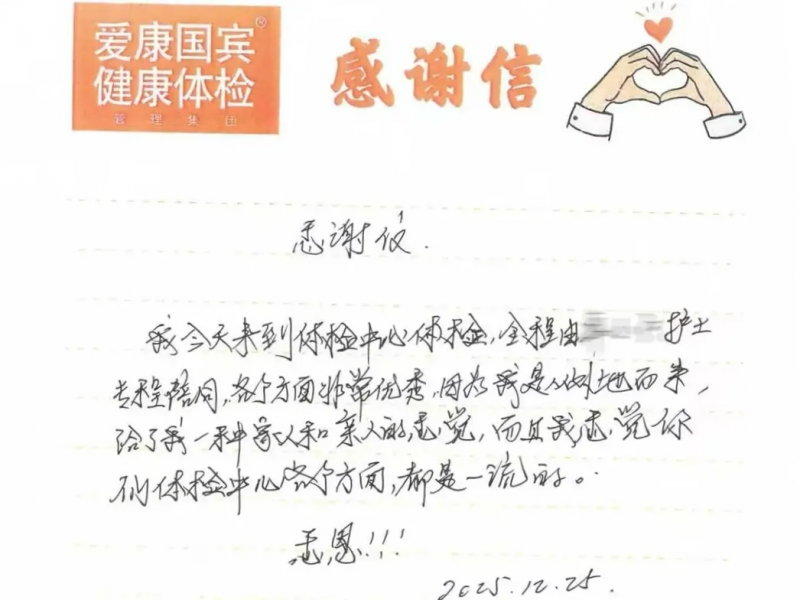 爱康国宾®
健康体检
管理集团
感谢信
感谢仪.
我今天来到体检中心体检,全程由 护士
专程陪同,各个方面非常优秀,因为我是从外地而来,
给了我一种家以和亲人的感觉,而且我感觉你
们体检中心各个方面,都是一流的。
感恩!!!
2025.12.25.